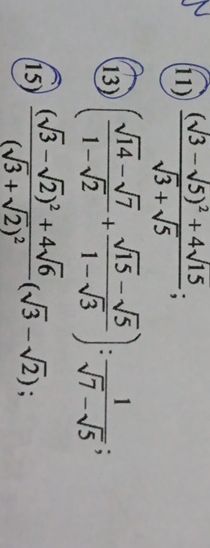 11) \frac{(\sqrt{3} - \sqrt{5})^2 + 4\sqrt{15}}{\sqrt{3} + \sqrt{5}};
13) \left( \frac{\sqrt{14} - \sqrt{7}}{1 - \sqrt{2}} + \frac{\sqrt{15} - \sqrt{5}}{1 - \sqrt{3}} \right) : \frac{1}{\sqrt{7} - \sqrt{5}};
15) \frac{(\sqrt{3} - \sqrt{2})^2 + 4\sqrt{6}}{(\sqrt{3} + \sqrt{2})^2} (\sqrt{3} - \sqrt{2});